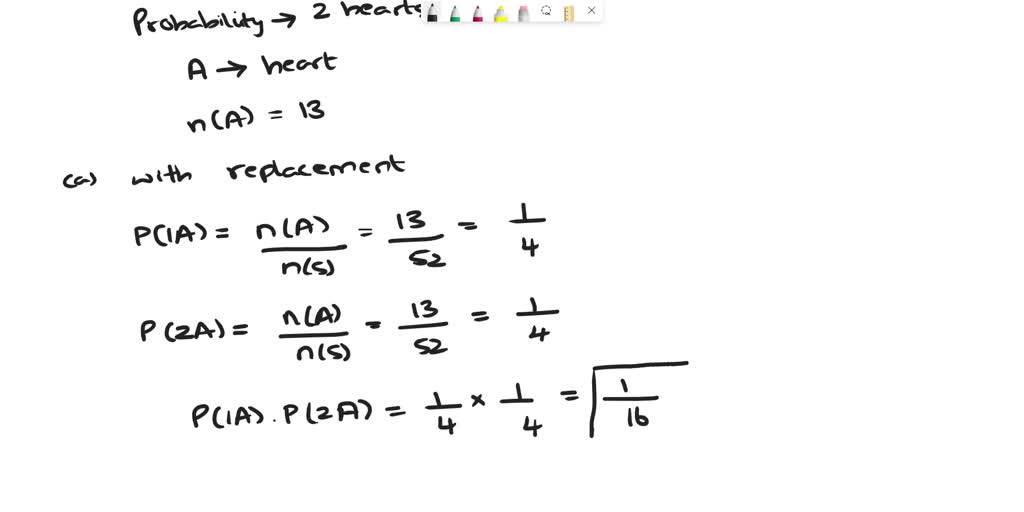 Probability → 2 hearts
A → heart
n(A) = 13
(a) with replacement
P(1A) = n(A)/n(S) = 13/52 = 1/4
P(2A) = n(A)/n(S) = 13/52 = 1/4
P(1A) . P(2A) = 1/4 × 1/4 = 1/16